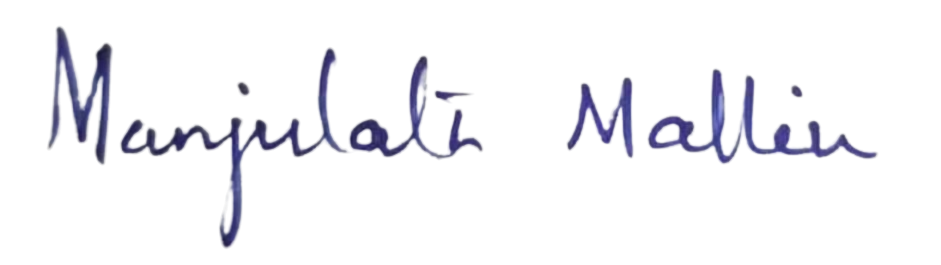 Manjulati Mallin